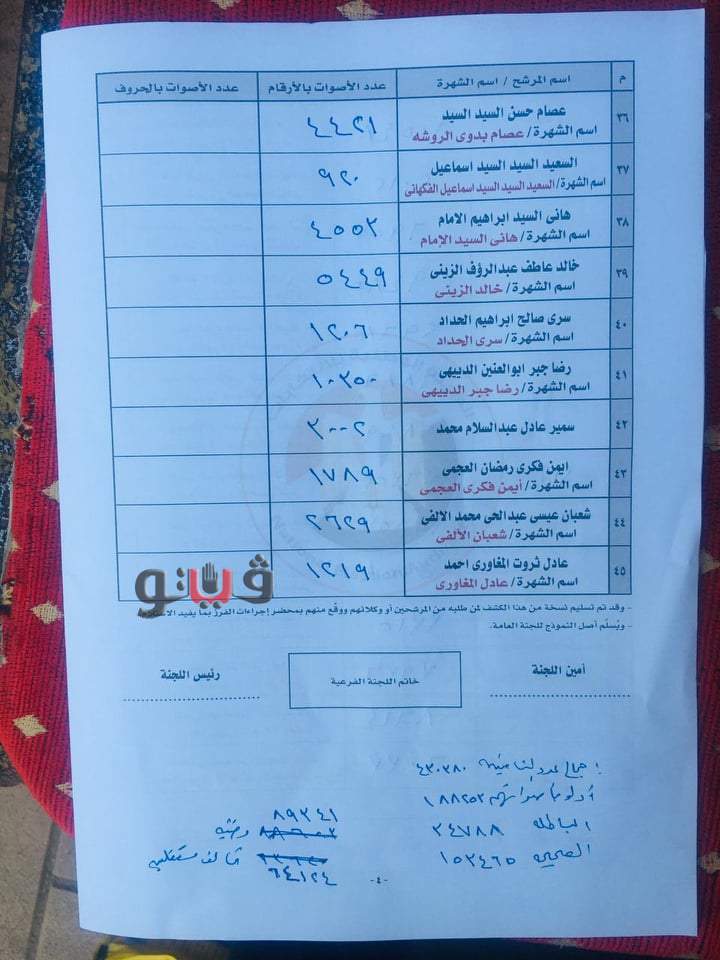 م اسم المرشح / اسم الشهرة عدد الأصوات بالأرقام عدد الأصوات بالحروف
٣٦ عصام حسن السيد السيد ٤٤٢١
اسم الشهرة/ عصام بدوى الروشه
٣٧ السعيد السيد السيد اسماعيل ٩٢٠
اسم الشهرة/ السعيد السيد السيد اسماعيل الفكهانى
٣٨ هانى السيد ابراهيم الامام
اسم الشهرة/ هانى السيد الإمام
٣٩ خالد عاطف عبدالرؤف الزينى ٥٤٤٩
اسم الشهرة/ خالد الزينى
٤٠ سرى صالح ابراهيم الحداد ١٢٠٦
اسم الشهرة/ سرى الحداد
٤١ رضا جبر ابوالعنين الدييهى
اسم الشهرة/ رضا جبر الدييهى
٤٢ سمير عادل عبدالسلام محمد
٤٣ ايمن فكرى رمضان العجمى ١٧٨٩
اسم الشهرة/ أيمن فكرى العجمى
٤٤ شعبان عيسى عبدالحى محمد الالفى ٢٦٢٩
اسم الشهرة/ شعبان الألفى
٤٥ عادل ثروت المغاورى احمد ١٢١٩
اسم الشهرة/ عادل المغاورى
ڤيتو
- وقد تم تسليم نسخة من هذا الكشف لمن طلبه من المرشحين أو وكلائهم ووقع منهم بمحضر إجراءات الفرز بما يفيد الاستلام
- ويُسلّم أصل النموذج للجنة العامة.
أمين اللجنة
خاتم اللجنة الفرعية
رئيس اللجنة
٤٣٠٣٨٠
١٨٨٢٥٣
الباطله ٣٤٧٨٨
الصحيح ١٥٣٤٦٥
٨٩٣٤١
٦٤١٢٤
-٤-